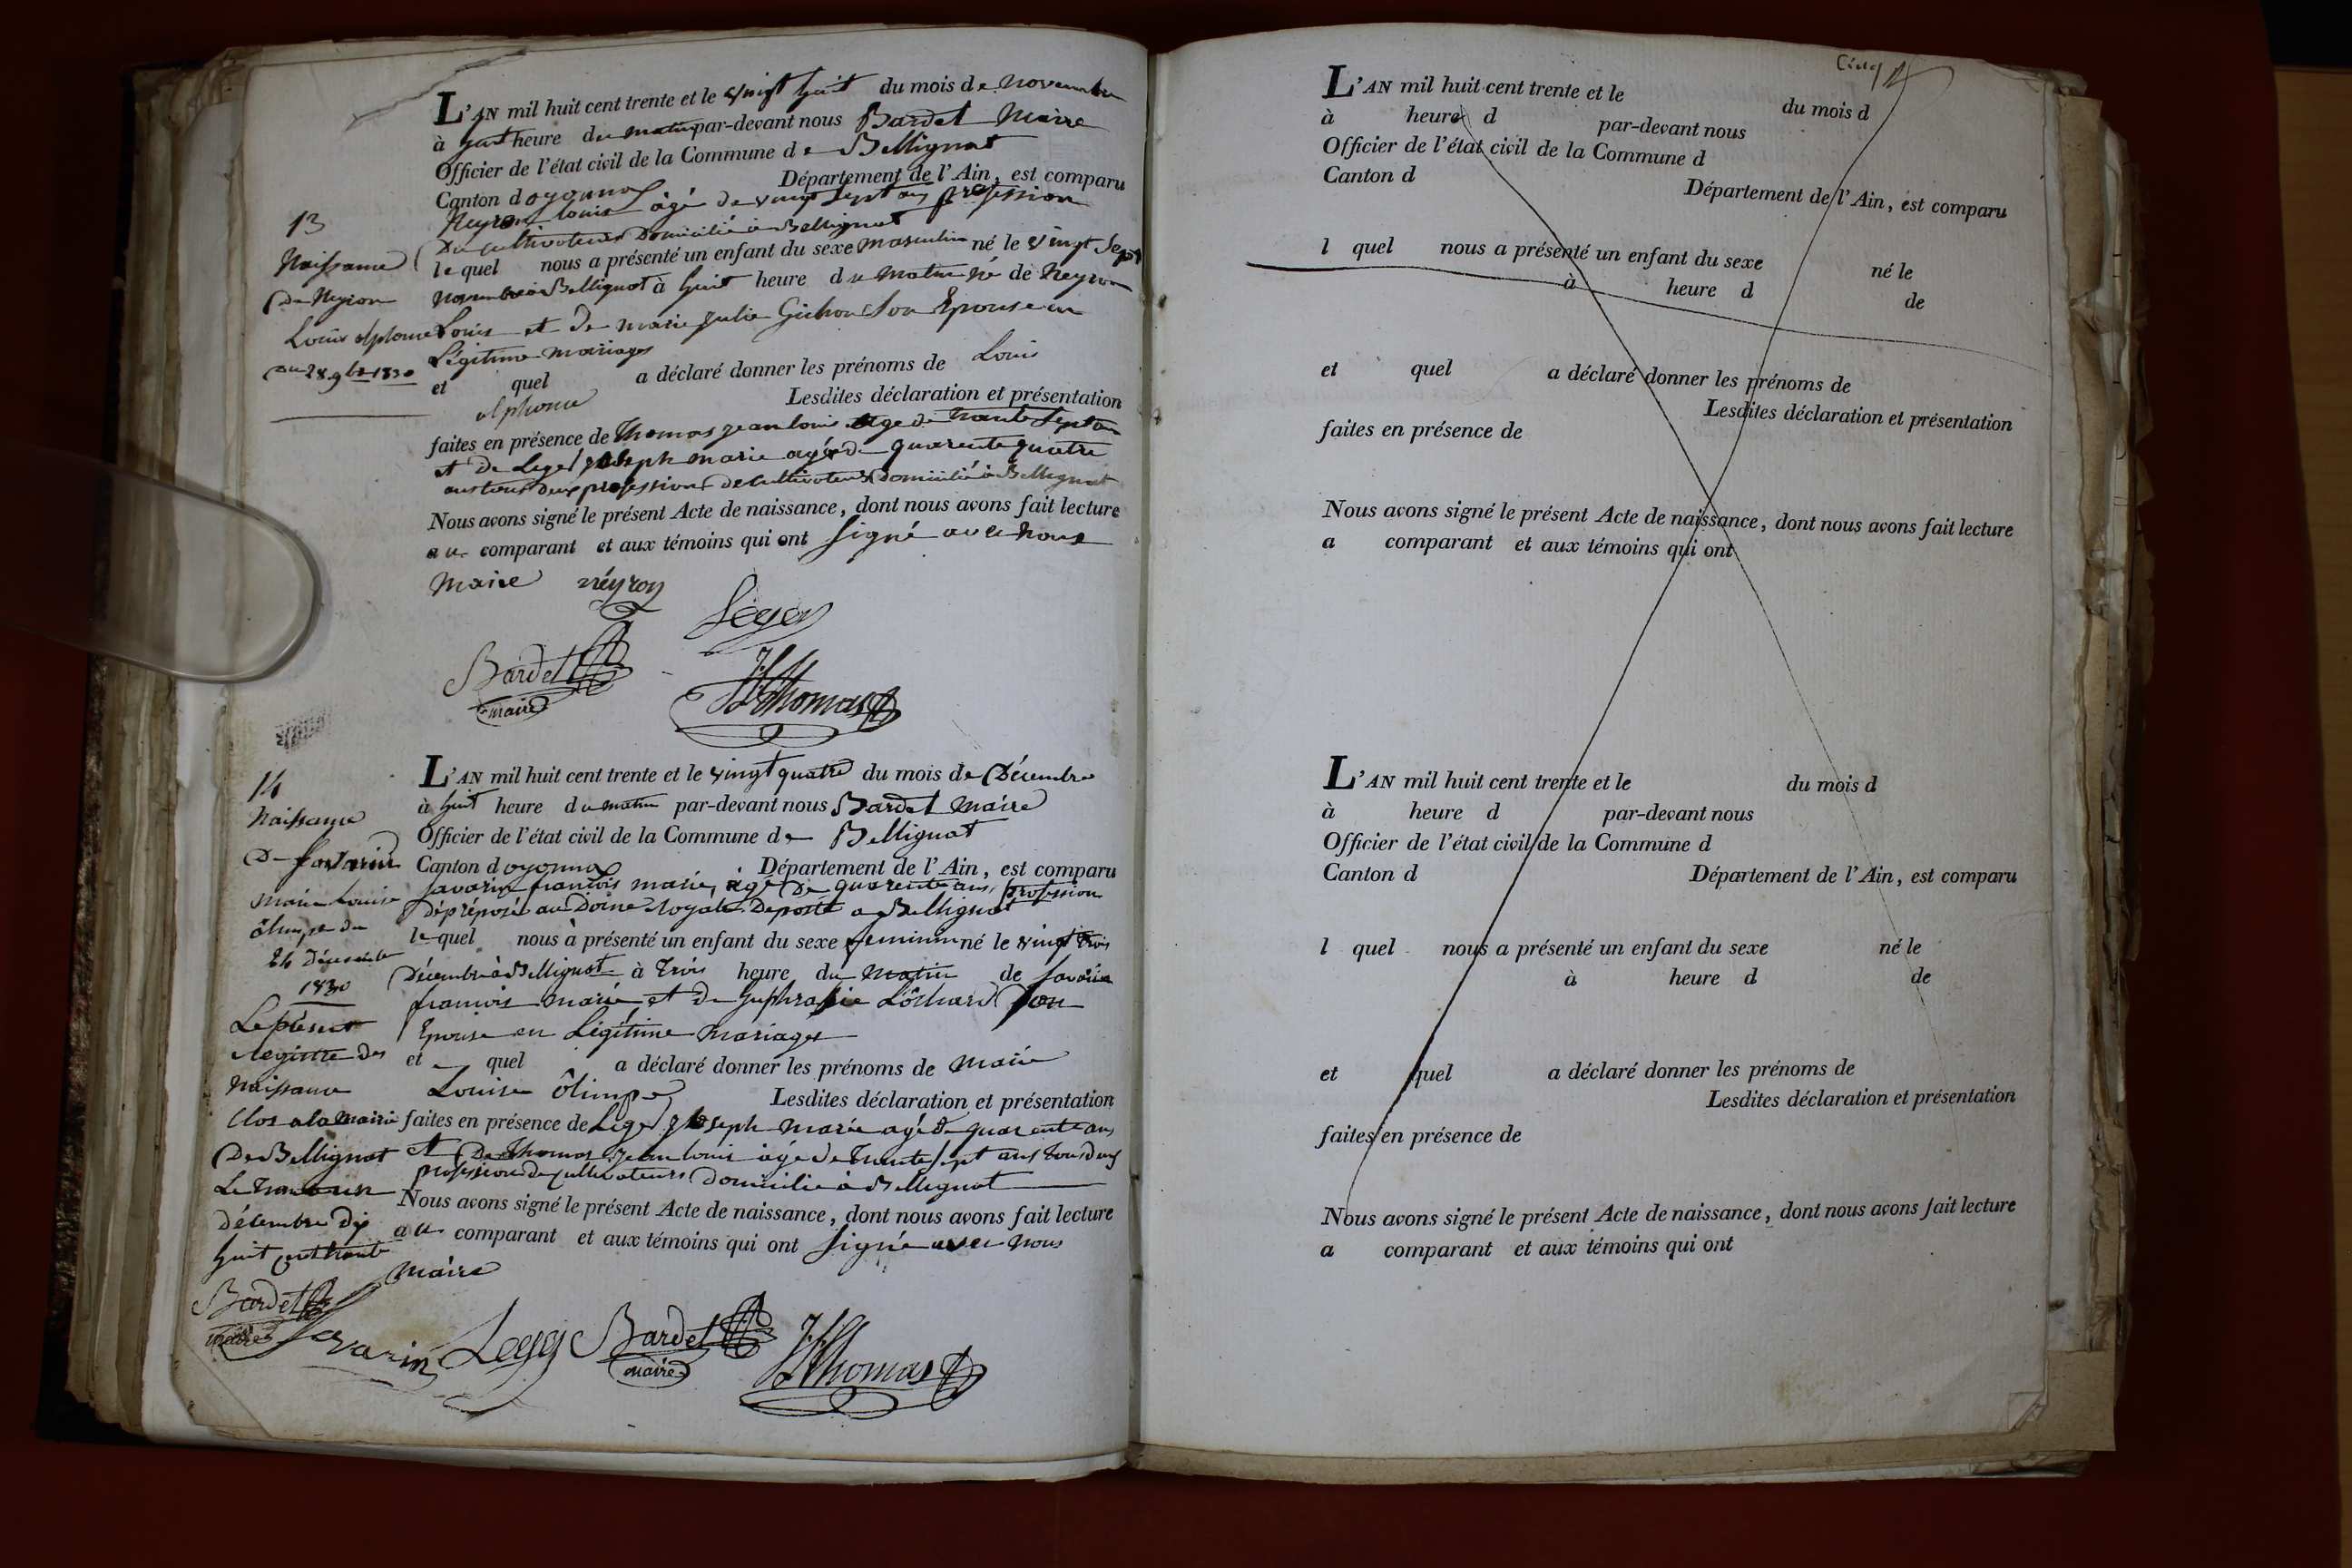 L'AN mil huit cent trente et le vingt huit du mois de novembre
à huit heure du matin par-devant nous Bardet Maire
Officier de l'état civil de la Commune de Bellignat
Canton d oyonnax Département de l'Ain, est comparu
Neyron louis âgé de vingt sept ans profession
De cultivateur Domicilié à Bellignat
lequel nous a présenté un enfant du sexe masculin né le vingt sept
novembre à Bellignat à huit heure du matin né de Neyron
Louis et De marie julie Guichon Son Epouse en
Légitime mariages
et quel a déclaré donner les prénoms de Louis
alphonse Lesdites déclaration et présentation
faites en présence de Thomas jean louis age de trante Sept an
et De Leger joseph marie agé de quarente quatre
ans tous deux profession de Cultivateur Domicilié à Bellignat
Nous avons signé le présent Acte de naissance, dont nous avons fait lecture
au comparant et aux témoins qui ont signé avec nous
Maire néyron
Léger
Bardet
maire
JLThomas
13
Naissance
De Neyron
Louis alphonse
du 28 9bre 1830
14
Naissance
De Savarin
Marie Louise
ôlimpe du
24 Décembre
1830
Le présent
registre des
Naissance
Clos a la mairie
De Bellignat
Le trante un
décembre dix
huit cent trante
Bardet
maire
L'AN mil huit cent trente et le vingt quatre du mois de Décembre
à huit heure du matin par-devant nous Bardet Maire
Officier de l'état civil de la Commune de Bellignat
Canton d oyonnax Département de l'Ain, est comparu
Savarin françois marie, âgé De quarente ans, profession
De préposé au Doine royale Deposté a Bellignat
lequel nous à présenté un enfant du sexe feminin né le vingt trois
Décembre à Bellignat à trois heure du matin de Savarin
françois marie et De Euphrasie Lôchard Son
Epouse en Légitime mariages
et quel a déclaré donner les prénoms de Marie
Louise ôlimpe Lesdites déclaration et présentation
faites en présence de Leger joseph marie agé de quarente ans
et De Thomas jean louis âgé de trante sept ans tous deux
profession de cultivateurs domicilié à Bellignat
Nous avons signé le présent Acte de naissance, dont nous avons fait lecture
au comparant et aux témoins qui ont signé avec nous
Maire
Savarin Leger Bardet
maire
JLThomas
L'AN mil huit cent trente et le du mois d
à heure d par-devant nous
Officier de l'état civil de la Commune d
Canton d Département de l'Ain, est comparu
l quel nous a présenté un enfant du sexe né le
à heure d de
et quel a déclaré donner les prénoms de
Lesdites déclaration et présentation
faites en présence de
Nous avons signé le présent Acte de naissance, dont nous avons fait lecture
a comparant et aux témoins qui ont
L'AN mil huit cent trente et le du mois d
à heure d par-devant nous
Officier de l'état civil de la Commune d
Canton d Département de l'Ain, est comparu
l quel nous a présenté un enfant du sexe né le
à heure d de
et quel a déclaré donner les prénoms de
Lesdites déclaration et présentation
faites en présence de
Nous avons signé le présent Acte de naissance, dont nous avons fait lecture
a comparant et aux témoins qui ont